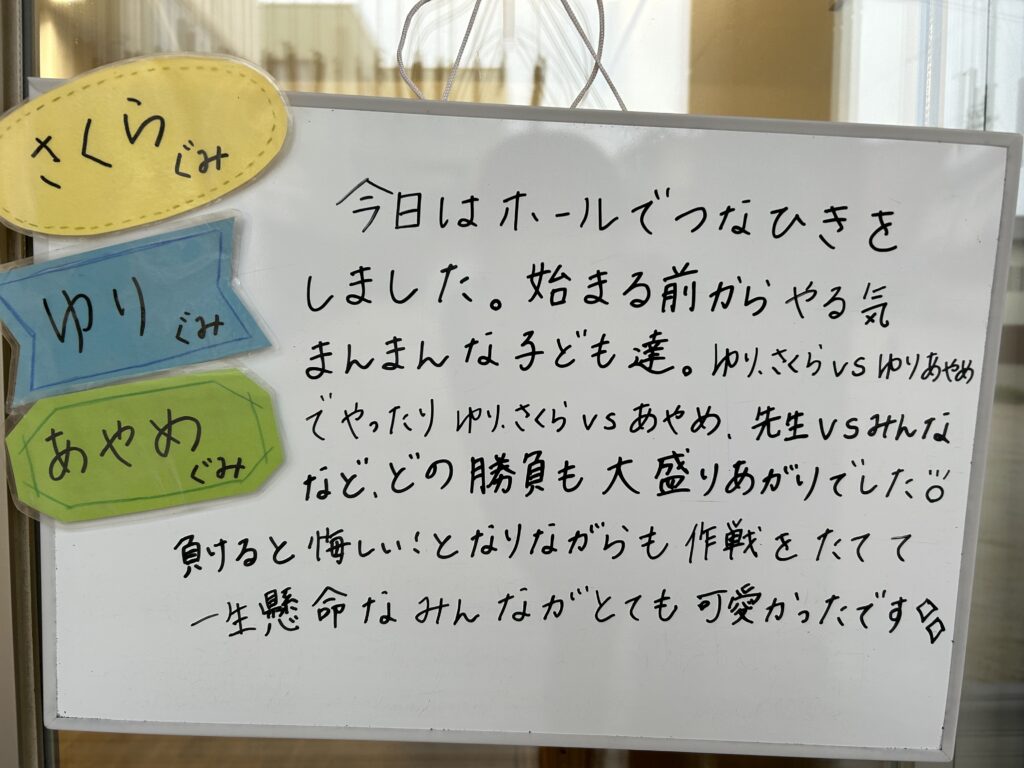 さくらぐみ
ゆりぐみ
あやめぐみ
今日はホールでつなひきを
しました。始まる前からやる気
まんまんな子ども達。ゆり、さくらvsゆりあやめ
でやったりゆり、さくらvsあやめ、先生vsみんな
など、どの勝負も大盛りあがりでした
負けると悔しい！となりながらも作戦をたてて
一生懸命なみんながとても可愛かったです